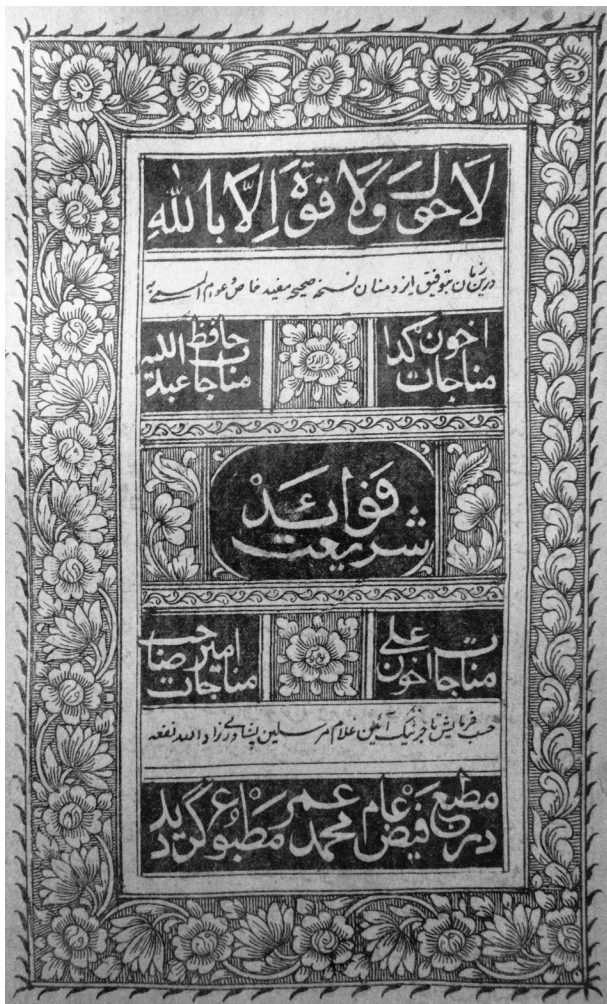 لَا حَولَ وَلَا قوّةَ اِلّا بِاللّٰهِ
درین زمان بتوفیق ایزد منان نسخہ صحیحہ مفید خاص و عوام المسمی بہ
مناجات اخون گدا
مناجات عبداللہ حافظ
فَوائدْ شریعت
مناجات اخون علی
مناجات امیر صاحب
حسب فرمایش تاجر نیک آئین غلام مرسلین پشاوری زاد اللہ نفعہ
در مطبع فیض عام محمد عمر مطبوع گردید